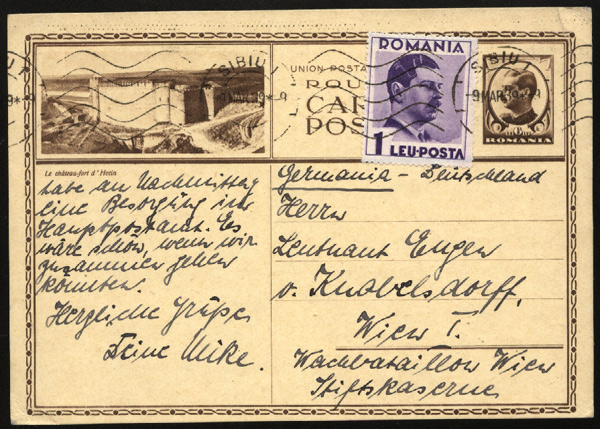 SIBIU 1
9 MAR 39
UNION POSTA
ROU
CAR
POS
ROMANIA
1 LEU-POSTA
SIBIU 1
9 MAR 39
6
ROMANIA
Le château-fort d'Hotin
habe am Nachmittag
eine Besorgung im
Hauptpostamt. Es
wäre schön, wenn wir
zusammen gehen
könnten.
Herzliche Grüße
Deine Mike.
Germania - Deutschland
Herrn
Leutnant Eugen
v. Knobelsdorff,
Wien I.
Wachbataillon Wien
Stiftskaserne